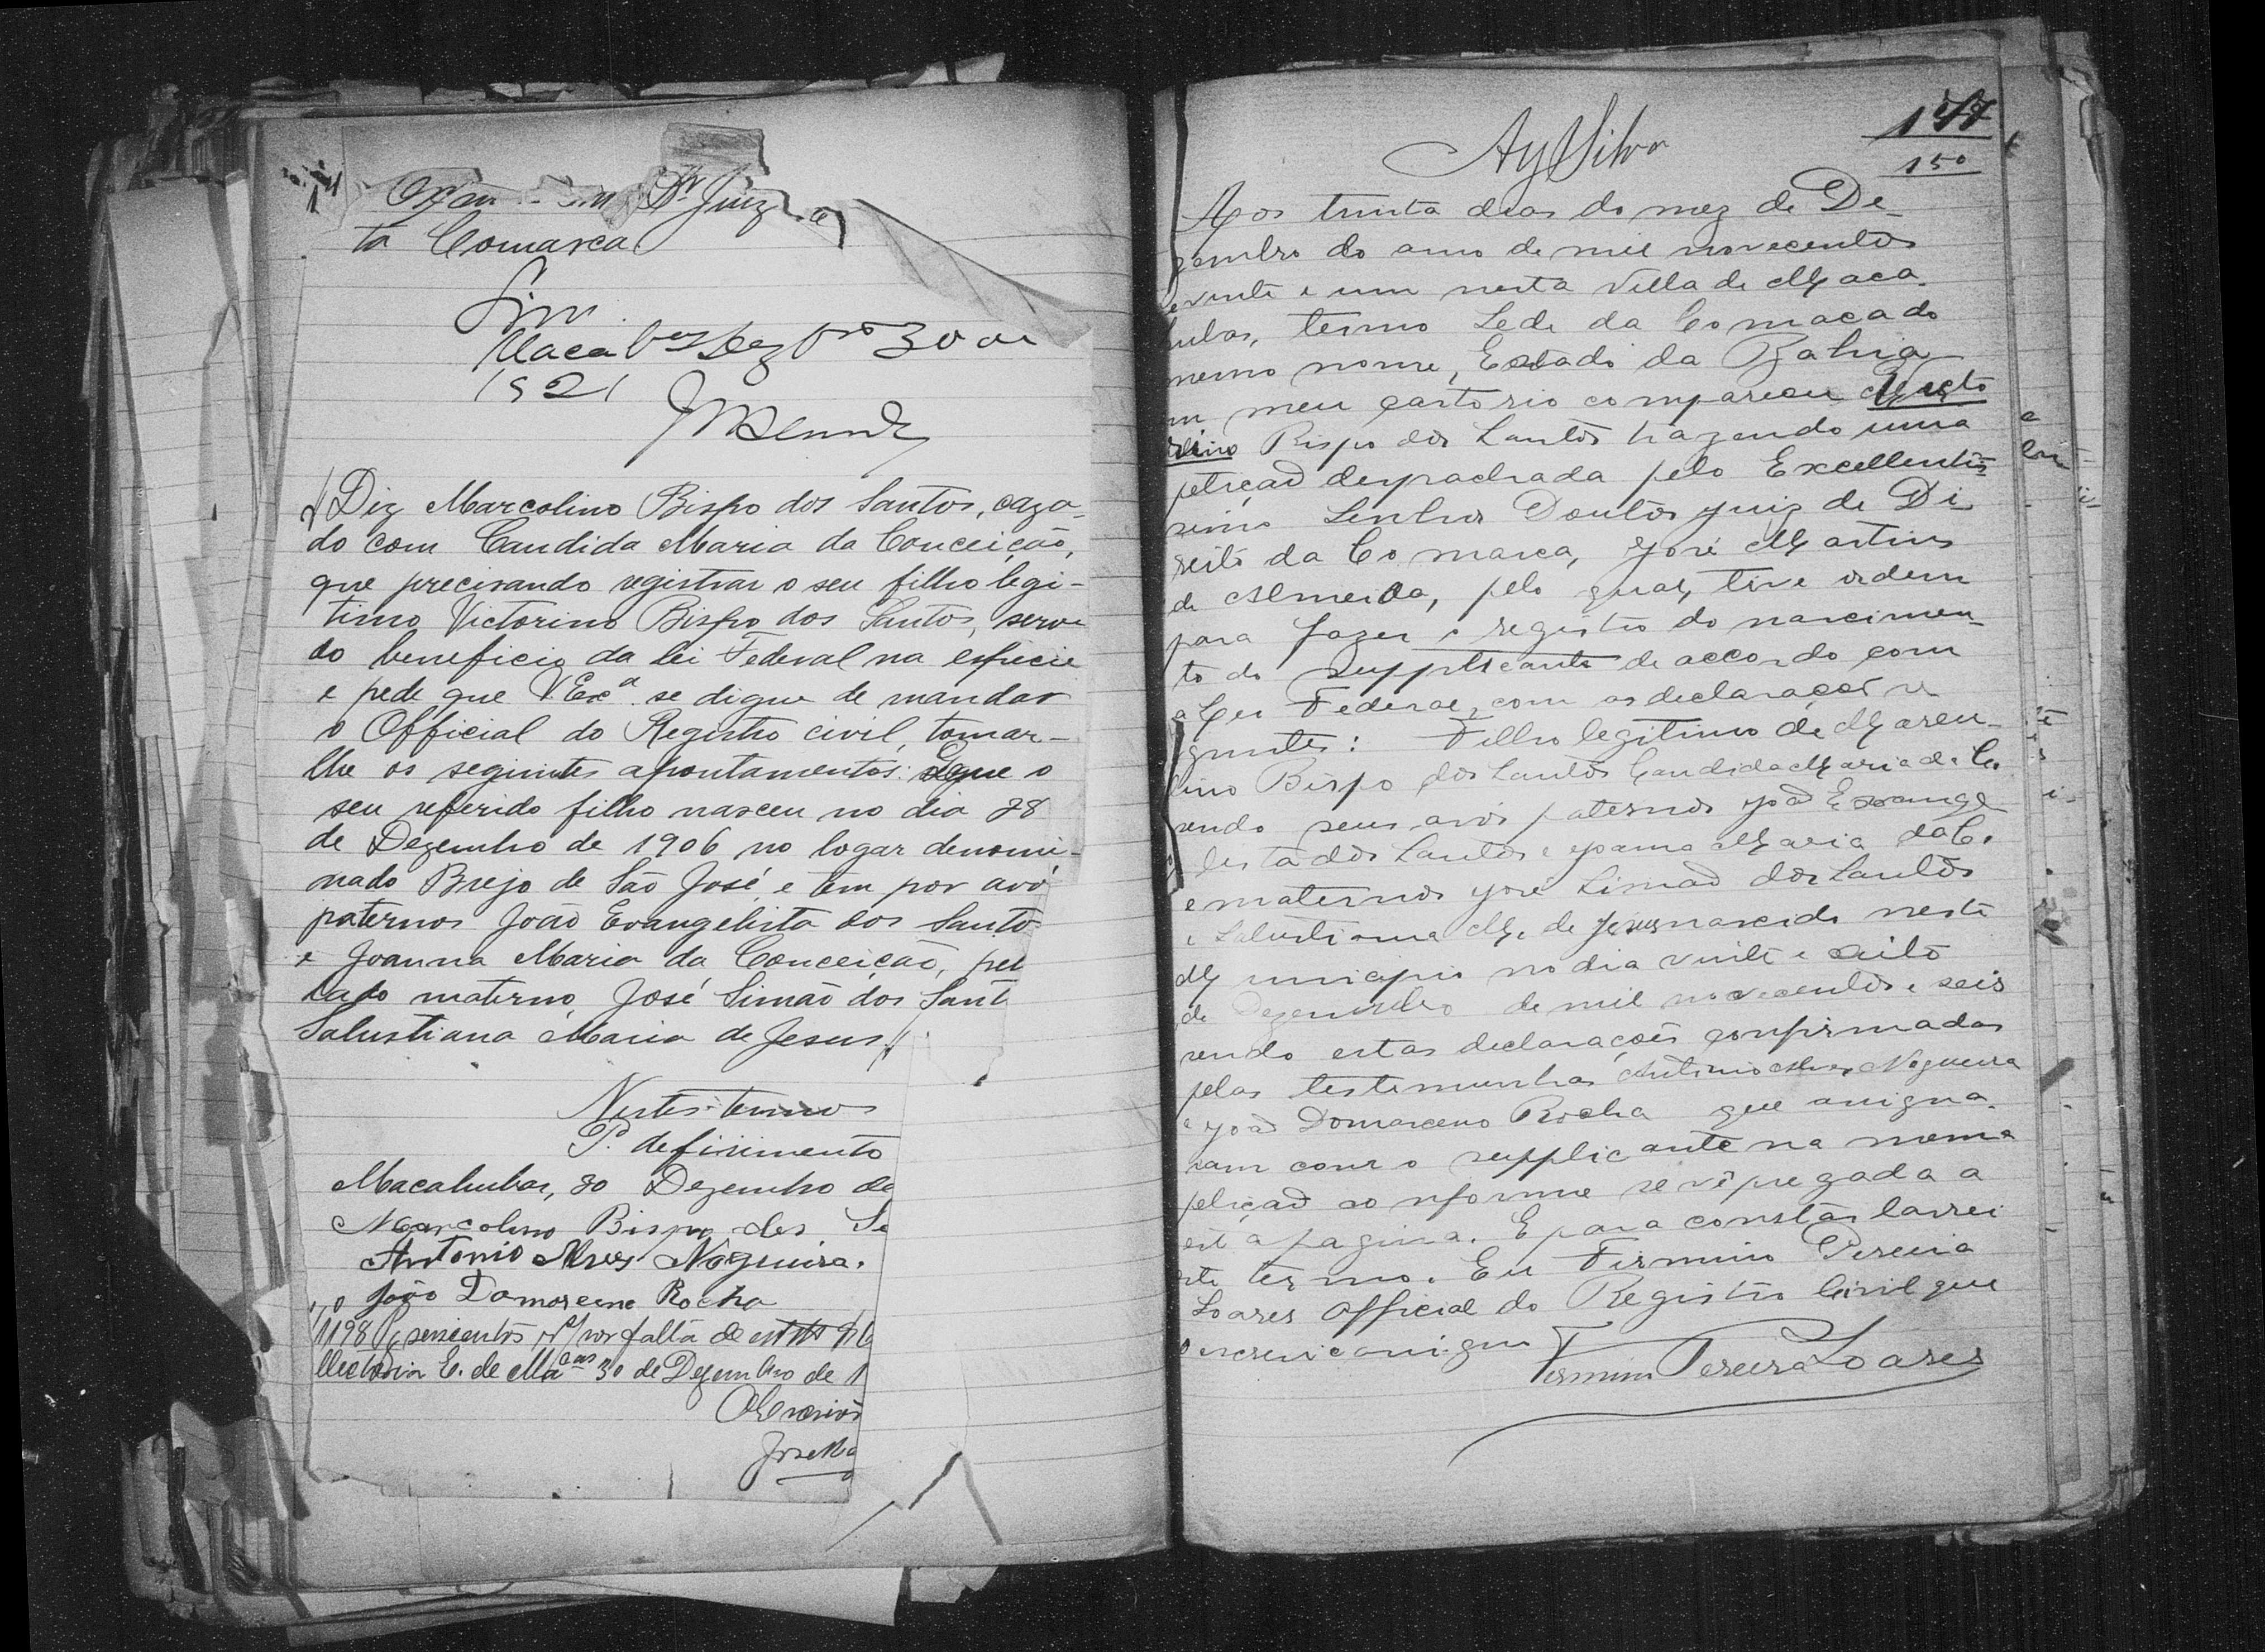 Sr. Juiz
ta Comarca
Sim
Macabas Dezbro 30 de
1921
Diz Marcolino Bispo dos Santos, caza-
do com Candida Maria da Conceição,
que precisando registrar o seu filho legi-
timo Victorino Bispo dos Santos, serve
do beneficio da lei Federal na especie
e pede que V. Exca. se digne de mandar
o Official do Registro civil, tomar-
lhe os seguintes apontamentos: que o
seu referido filho nasceu no dia 28
de Dezembro de 1906 no logar denomi-
nado Brejo de São José, e tem por avó
paternos João Evangelista dos Santo
e Joanna Maria da Conceição, pel
lado materno, José Simão dos Sant
Salustiana Maria de Jesus.
Nestes termos
P. deferimento
Macahubas, 30 Dezembro de
Marcolino Bispo dos Sa
Antonio Alves Nogueira.
João Domarceno Rocha
1198 por falta de
E. de Macas 30 de Dezembro de 1
O Escrivão
177
150
Ay Silva
Aos trinta dias do mez de De-
zembro do anno de mil novecentos
e vinte e um nesta Villa de Maca-
hubas, termo Sede da Comaca do
mesmo nome, Estado da Bahia
m meu cartorio compareceu Victo
rino Bispo dos Santos trazendo uma
petiçaõ despachada pelo Excellentis-
simo Senhor Doutor Juiz de Di
reito da Comarca, José Martins
de Almeida, pelo qual, tive ordem
para fazer o registro do nascimen-
to do supplicante de accordo com
a Lei Federal, com as declarações se
guintes: Filho legitimo de Marcu-
lino Bispo dos Santos Candida Maria da C.
sendo seus avós paternos Joaõ Evange
lista dos Santos e Joana Maria da C.
e maternos José Simaõ dos Santos
e Salustiana M. de Jesus nascido neste
Municipio no dia vinte e oito
de Dezembro de mil novecentos e seis
sendo estas declarações confirmadas
pelas testemunhas Antonio Alves Nogueira
e Joaõ Domarceno Rocha que assigna-
ram com o supplicante na mesma
petiçaõ conforme se vê pregada a
esta pagina. E para constar lavrei
este termo. Eu Firmino Pereira
Soares official do Registro Civil que
o escrevi e assigno
Firmino Pereira Soares